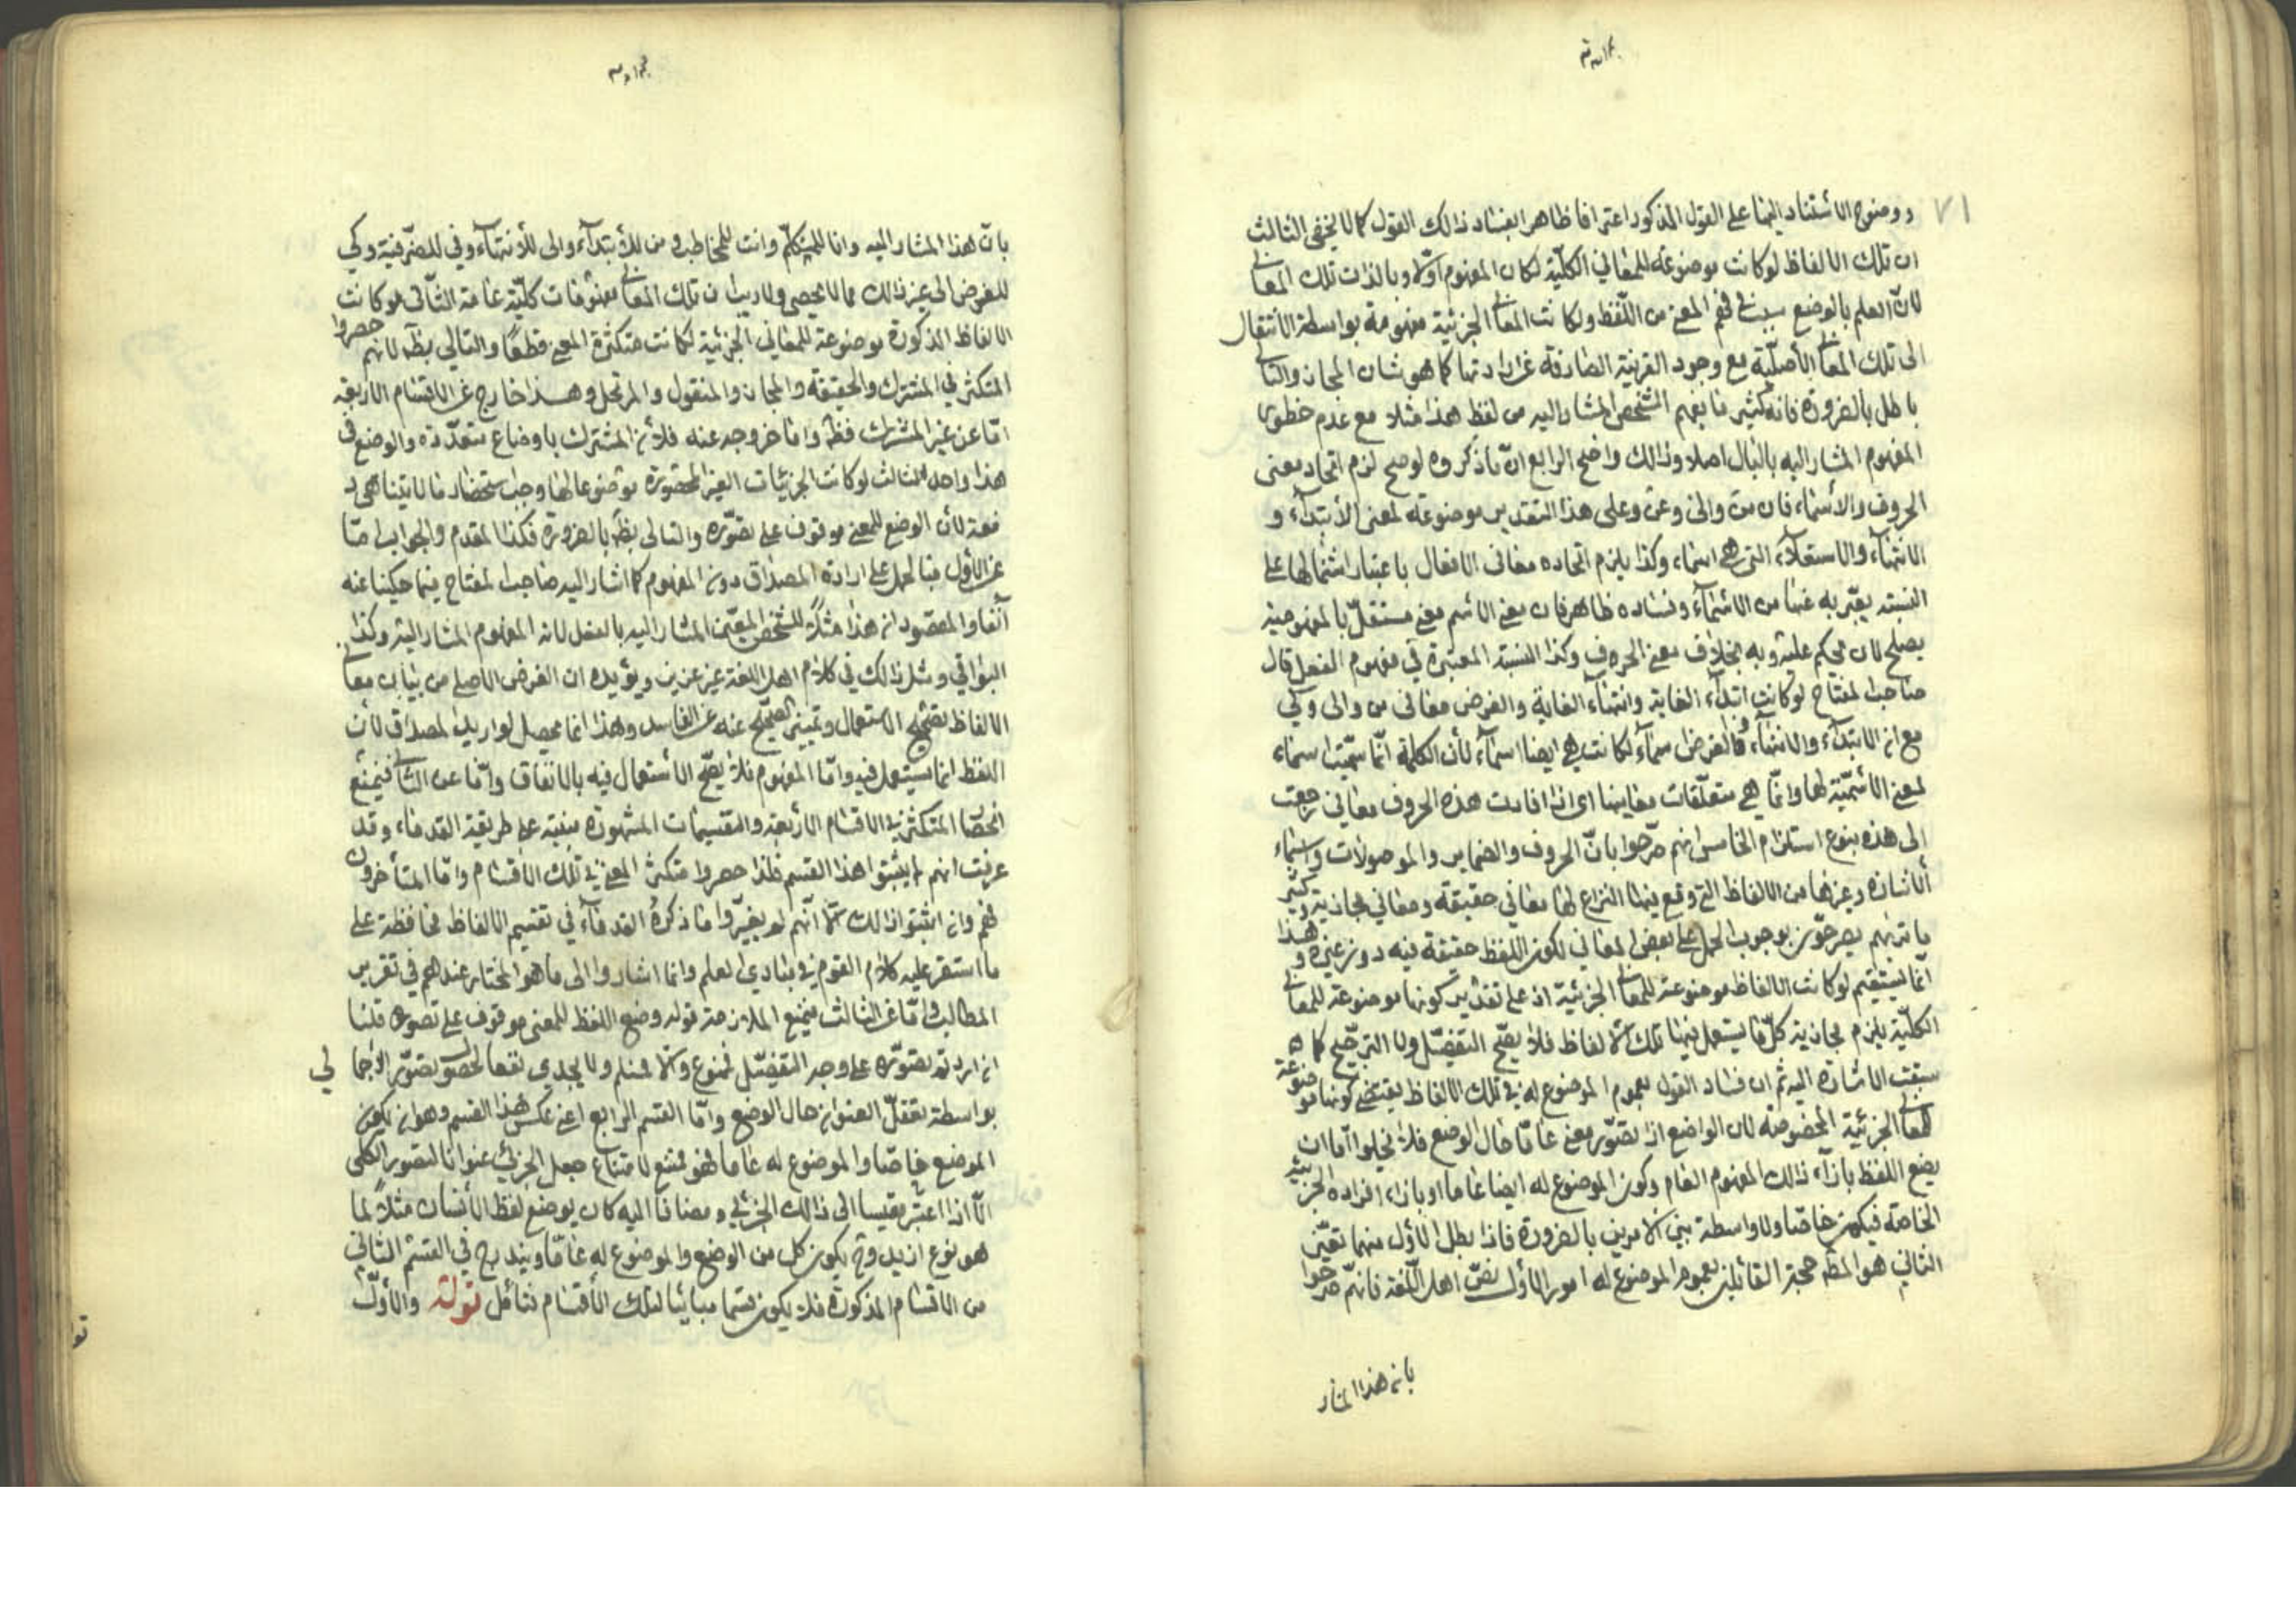 ٧١
ووضوح الاستناد اليها على القول المذكور اعترافا ظاهرا بفساد ذالك القول كما لا يخفى الثالث
ان تلك الالفاظ لوكانت موضوعة للمعاني الكلّية لكان المفهوم اوّلا وبالذات تلك المعانى
لانّ العلم بالوضع سبب في فهم المعنى من اللّفظ ولكانت المعانى الجزئية مفهومة بواسطة الأنتقال
الى تلك المعانى الأصليّة مع وجود القرينة الصارفة عن ارادتها كما هو شان المجاز والتالى
باطل بالضرورة فانه كثير ما يفهم الشخص المشار اليه من لفظ هذا مثلا مع عدم خطور
المفهوم المشار اليه بالبال اصلا وذالك واضح الرابع انّ ما ذكروه لو صح لزم اتحاد معنى
الحروف والأسماء فان من والى وعن وعلى هذا التقدير موضوعة لمعنى الأبتدآء و
الانتهآء والاستعلآء التي هي اسماء وكذا يلزم اتحاده معانى الافعال باعتبار اشتمالها على
النسبته يعبّر به عنها من الأسمآء وفساده ظاهر فان معنى الاسم معنى مستقلّ بالمفهومية
يصلح لان يحكم عليه وبه بخلاف معنى الحروف وكذا النسبة المعتبرة في مفهوم الفعل قال
صاحب المفتاح لوكانت ابتدآء الغاية وانتهاء الغاية والغرض معانى من والى وكي
مع ان الابتدآء والانتهآء والغرض اسمآء لكانت هي ايضا اسمآء لأن الكلمة انّما سمّيت اسماء
لمعنى الأسميّة لها وانّما هي متعلّقات معانيها اى اذا افادت هذه الحروف معاني رجعت
الى هذه بنوع استلزام الخامس انهم صرّحوا بانّ الحروف والضماير والموصولات واسماء
الأشارة وغيرها من الالفاظ التي وقع فيها النزاع لها معانى حقيقة ومعاني مجازية وكثير
ما تريهم يصرحون بوجوب الحمل على بعض المعاني لكون اللفظ حقيقة فيه دون غيره وهذا
انما يستقيم لوكانت الالفاظ موضوعة للمعانى الجزئية اذ على تقدير كونها موضوعة للمعانى
الكلّية يلزم مجازية كلّ ما يستعمل فيها تلك الالفاظ فلا يصح التفصّيل ولا الترجيح كما
سبقت الاشارة اليه ثم ان فساد القول بعموم الموضوع له في تلك الالفاظ يقتضى كونها موضوعة
للمعانى الجزئية المخصوصة لان الواضع اذا تصوّر معنى عامّا حال الوضع فلا يخلوا امّا ان
يضع اللفظ بازآء ذالك المفهوم العام وكون الموضوع له ايضا عاما او بازاء افراده الجزئية
الخاصة فيكون خاصّا ولا واسطة بين الامرين بالضرورة فاذا بطل الأول منهما تعيّن
الثاني هو المط حجة القائلين بعموم الموضوع له امور الأول نصّ اهل اللّغة فانهم صرّحوا
بان هذا المشار
بانّ هذا المشار اليه وانا للمتكلّم وانت للمخاطب ومن للأبتدآء والى للأنتهآء وفي للظرفية وكي
للغرض الى غير ذالك مما لا يحصى ولا ريب ان تلك المعانى مفهومات كلّية عامة الثّانى لوكانت
الالفاظ المذكورة موضوعة للمعاني الجزئية لكانت متكثرة المعنى قطعًا والتالي بط لانهم حصروا
المتكثر في المشترك والحقيقة والمجاز والمنقول والمرتجل وهذا خارج عن الاقسام الاربعة
امّا عن غير المشترك فظ وامّا خروجه عنه فلأن المشترك باوضاع متعدّدة والوضع في
هذا واحد الثالث لوكانت الجزئيات الغير المحصورة موضوعا لها وجب استحضار ما لا يتناهى د
فعة لأن الوضع للمعنى موقوف على تصوّره والتالى بط بالضرورة فكذا المقدم والجواب امّا
عن الأول فبالحمل على ارادة المصداق دون المفهوم كما اشار اليه صاحب المفتاح فيما حكينا عنه
آنفا والمقصود ان هذا مثلاً للشخص المعيّن المشار اليه بالفعل لا ان المفهوم المشار اليه وكذا
البواقي ومثل ذالك في كلام اهل اللغة غير عزيز ويؤيده ان الغرض الاصلى من بيان معانى
الالفاظ تصحيح الاستعمال وتميّز الصحيح عنه عن الفاسد وهذا انما يحصل لو اريد المصداق لأن
اللفظ انما يستعمل فيه وامّا المفهوم فلا يصحّ الأستعمال فيه بالاتفاق وامّا عن الثانى فبمنع
انحصار المتكثر في الاقسام الأربعة والتقسيمات المشهورة مبنية على طريقة القدماء وقد
عرفت انهم لم يثبتوا هذا القسم فلذا حصروا متكثر المعنى في تلك الأقسام وامّا المتأخرون
فهم وان اثبتوا ذالك الّا انّهم لم يغيّروا ما ذكره القدمآء في تقسيم الالفاظ محافظة على
ما استقر عليه كلام القوم في مبادى العلم وانما اشاروا الى ما هو المختار عندهم في تقرير
المطالب وامّا عن الثالث فبمنع الملازمة قوله وضع اللفظ للمعنى موقوف على تصوره قلنا
ان اردتم تصوّره على وجه التفصّيل فممنوع والّا فمسلم ولا يجدي نفعا لحصول تصوّر الأجمالي
بواسطة تعقّل العنوان حال الوضع وامّا القسم الرابع اعنى عكس هذا القسم وهو ان يكون
الموضع خاصّا والموضوع له عاما فهو ممتنع لامتناع جعل الجزئى عنوانا لتصور الكلى
الّا اذا اعتبر مقيسا الى ذالك الجزئي ومضافا اليه كان يوضع لفظ الأنسان مثلاً لما
هو نوع لزيد وح يكون كل من الوضع والموضوع له عامّا ويندرج في القسم الثاني
من الاقسام المذكورة فلا يكون قسما مبائنا لتلك الأقسام فتأمل قوله والأوّل